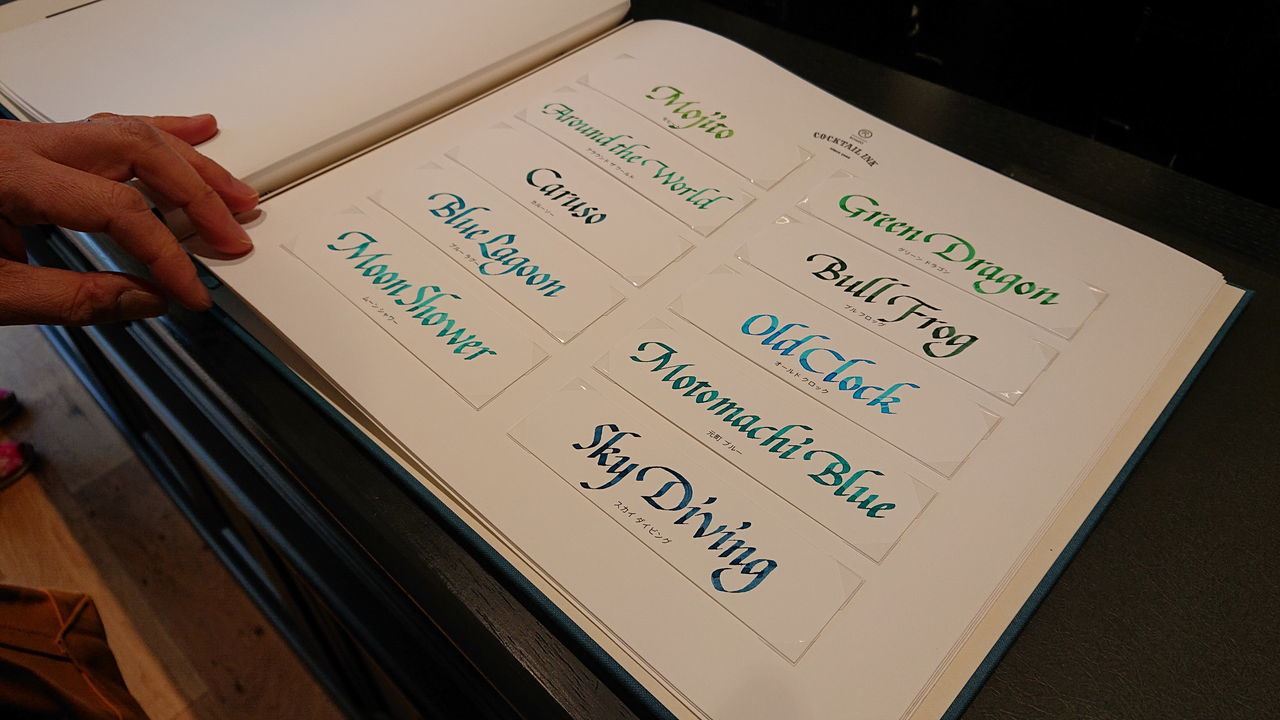 COCKTAIL INK
Mojito
モヒート
Around the World
アラウンド ザ ワールド
Caruso
カルーソー
Blue Lagoon
ブルー ラグーン
Moon Shower
ムーン シャワー
Green Dragon
グリーン ドラゴン
Bull Frog
ブル フロッグ
Old Clock
オールド クロック
Motomachi Blue
元町 ブルー
Sky Diving
スカイ ダイビング